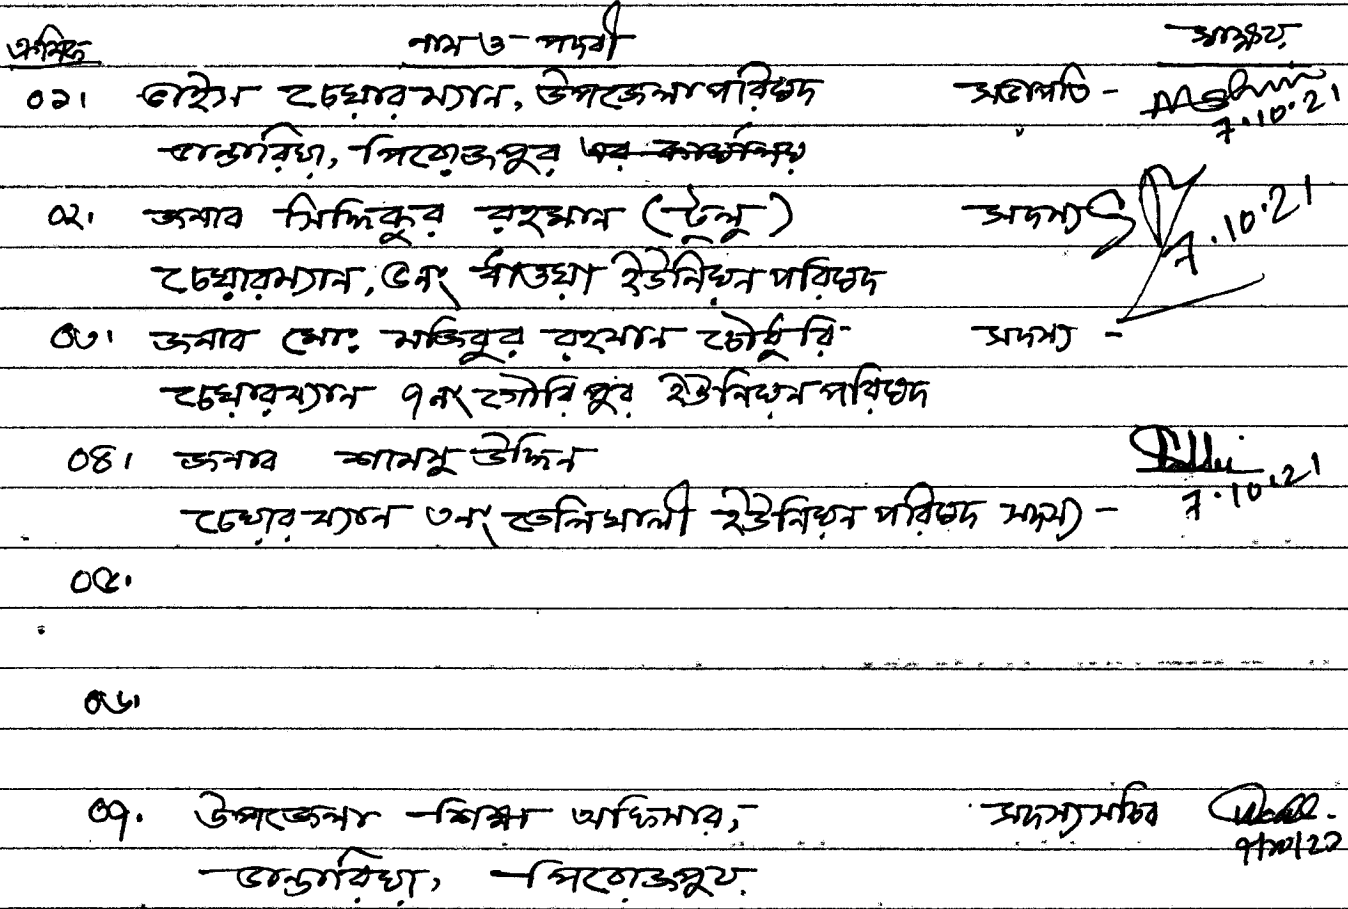 ক্রমিক নাম ও পদবী স্বাক্ষর
০১। ভাইস চেয়ারম্যান, উপজেলা পরিষদ সভাপতি -
7.10.21
ভান্ডারিয়া, পিরোজপুর এর কার্যালয়
০২. জনাব সিদ্দিকুর রহমান (টুলু) সদস্য
7.10.21
চেয়ারম্যান, ৫নং ধাওয়া ইউনিয়ন পরিষদ
০৩. জনাব মোঃ মজিবুর রহমান চৌধুরি সদস্য -
চেয়ারম্যান ৭নং গৌরিপুর ইউনিয়ন পরিষদ
০৪। জনাব শামসু উদ্দিন
7.10.21
চেয়ারম্যান ৩নং তেলিখালী ইউনিয়ন পরিষদ সদস্য -
০৫.
০৬.
০৭. উপজেলা শিক্ষা অফিসার, সদস্য সচিব
৭/১০/২১
ভান্ডারিয়া, পিরোজপুর.